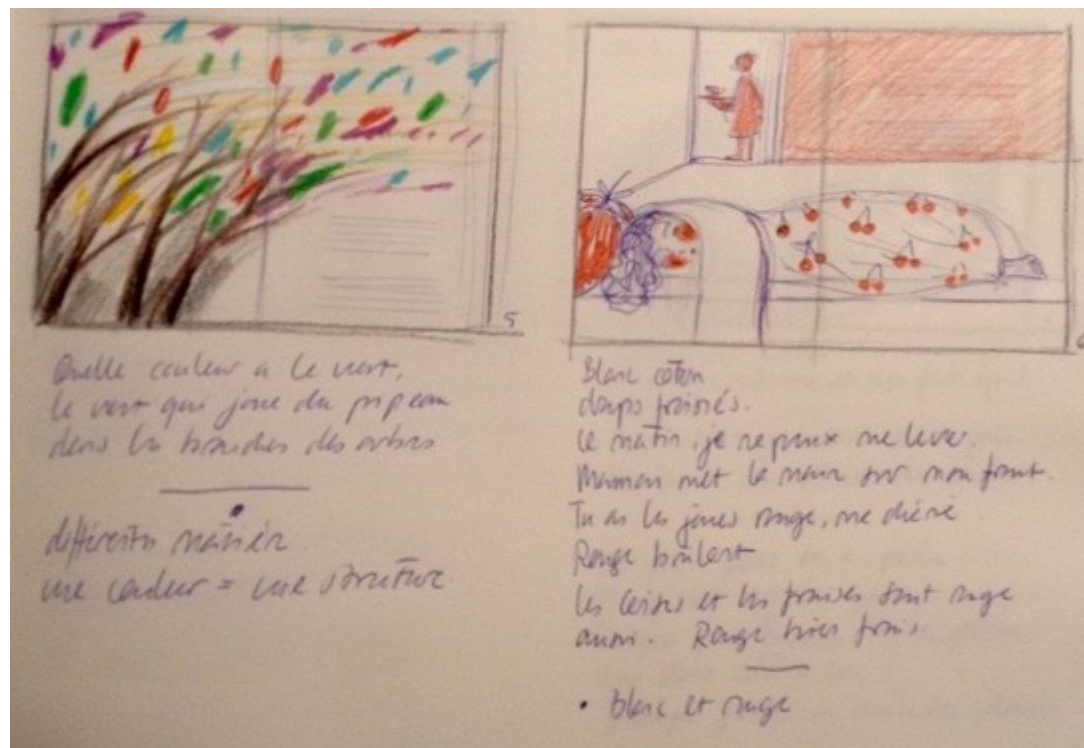 5
Quelle couleur a le vent,
le vent qui joue du pipeau
dans les branches des arbres
différentes matières
une couleur = une structure
6
Blanc coton
draps froissés.
Le matin, je ne peux me lever.
Maman met la main sur mon front.
Tu as les joues rouge, ma chérie
Rouge brûlant
les cerises et les fraises sont rouge
aussi. Rouge très frais
• blanc et rouge